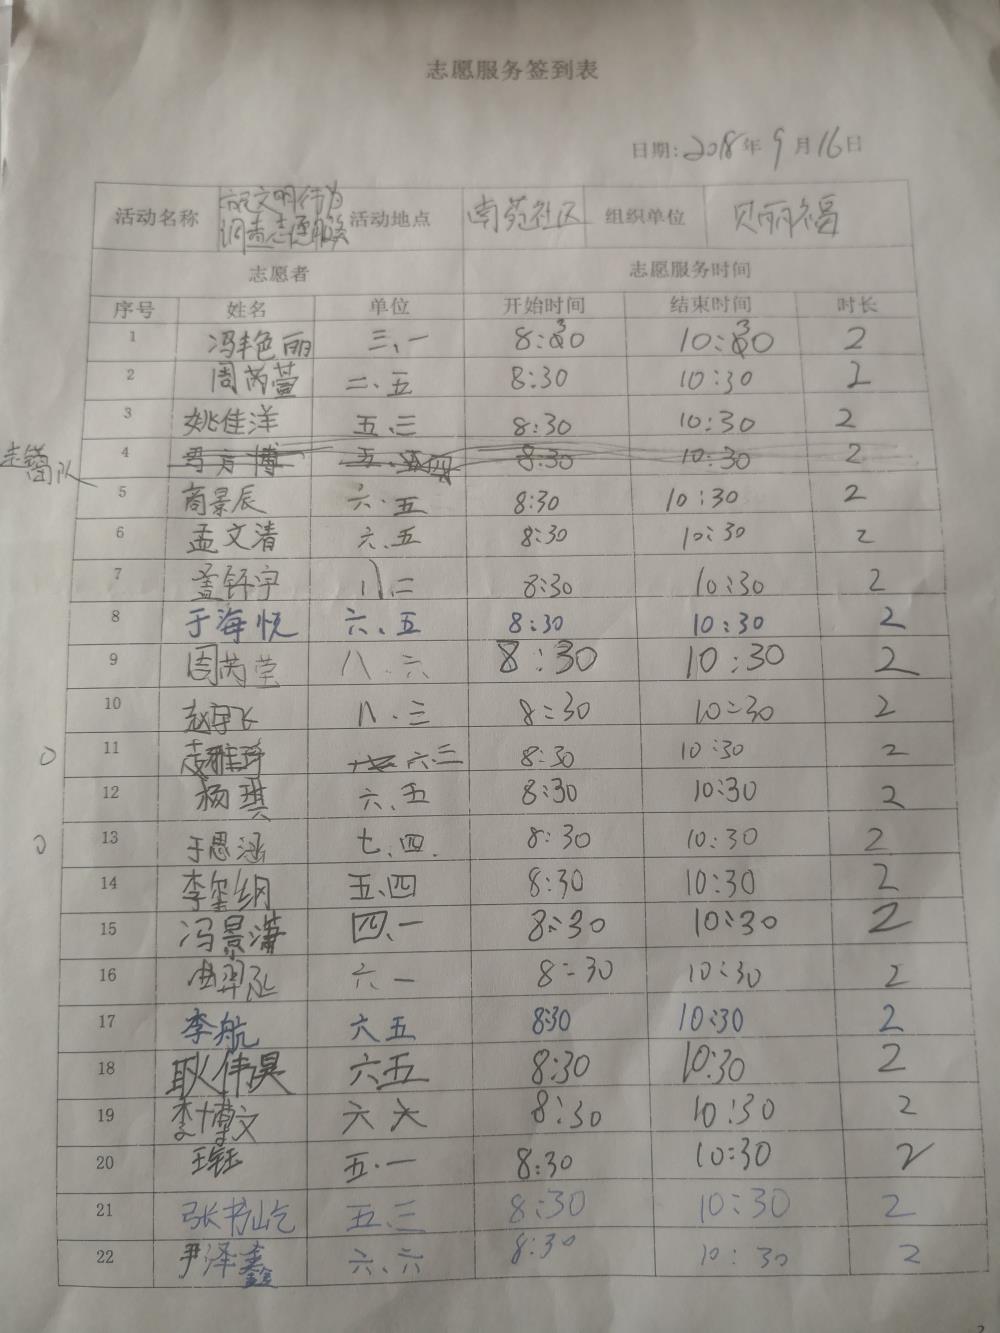 志愿服务签到表
日期:2018年9月16日
活动名称 市民文明行为 调查志愿服务 活动地点 南苑社区 组织单位 贝丽福
志愿者 志愿服务时间
序号 姓名 单位 开始时间 结束时间 时长
1 冯艳丽 三、一 8:30 10:30 2
2 周芮萱 二、五 8:30 10:30 2
3 姚佳洋 五、三 8:30 10:30 2
4 博 8:30 10:30 2
5 商景辰 六·五 8:30 10:30 2
6 孟文清 六、五 8:30 10:30 2
7 孟钚宇 八、二 8:30 10:30 2
8 于海悦 六、五 8:30 10:30 2
9 周芮莹 八·六 8:30 10:30 2
10 赵宇飞 八·三 8:30 10:30 2
11 六·三 8:30 10:30 2
12 杨琪 六、五 8:30 10:30 2
13 于思涵 七、四. 8:30 10:30 2
14 李玺纲 五、四 8:30 10:30 2
15 冯景潇 四、一 8:30 10:30 2
16 曲羿延 六一 8:30 10:30 2
17 李航 六五 8:30 10:30 2
18 耿伟昊 六五 8:30 10:30 2
19 李博文 六六 8:30 10:30 2
20 王钰 五·一 8:30 10:30 2
21 张书屹 五、三 8:30 10:30 2
22 尹泽鑫 六、六 8:30 10:30 2